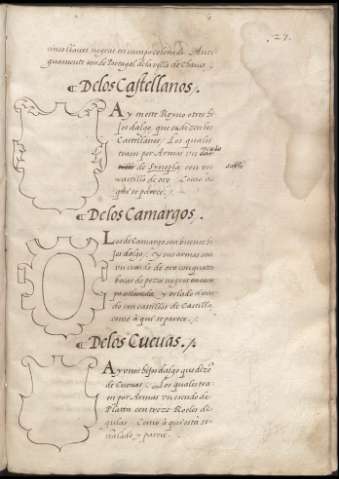 27.
cinco llaves negras en campo colorado. Anti
guamente son de Portugal de la villa de Chaves.
¶ De los Castellanos .
Ay en este Reyno otros hi
josdalgo, que se dizen los
Castellanos. Los quales
traen por Armas un
de Sinopla con un
castillo de oro. Como a
qui se parece.
¶ De los Camargos .
Los de Camargo son buenos hi
josdalgo, y sus armas son
un escudo de oro con quatro
de pezas negras en cam
po y orlado el escu
do con castillos de Castilla
como a qui se parece.
¶ De los Cuevas .
Ay unos hijosdalgo que dizē
de Cuevas. Los quales tra
en por Armas un escudo de
Plata con treze Roeles de
Como a qui está se
ñalado, y parece.